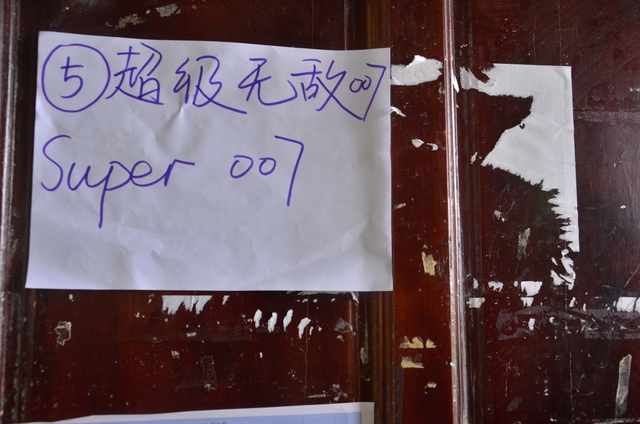 ⑤超级无敌007
Super 007